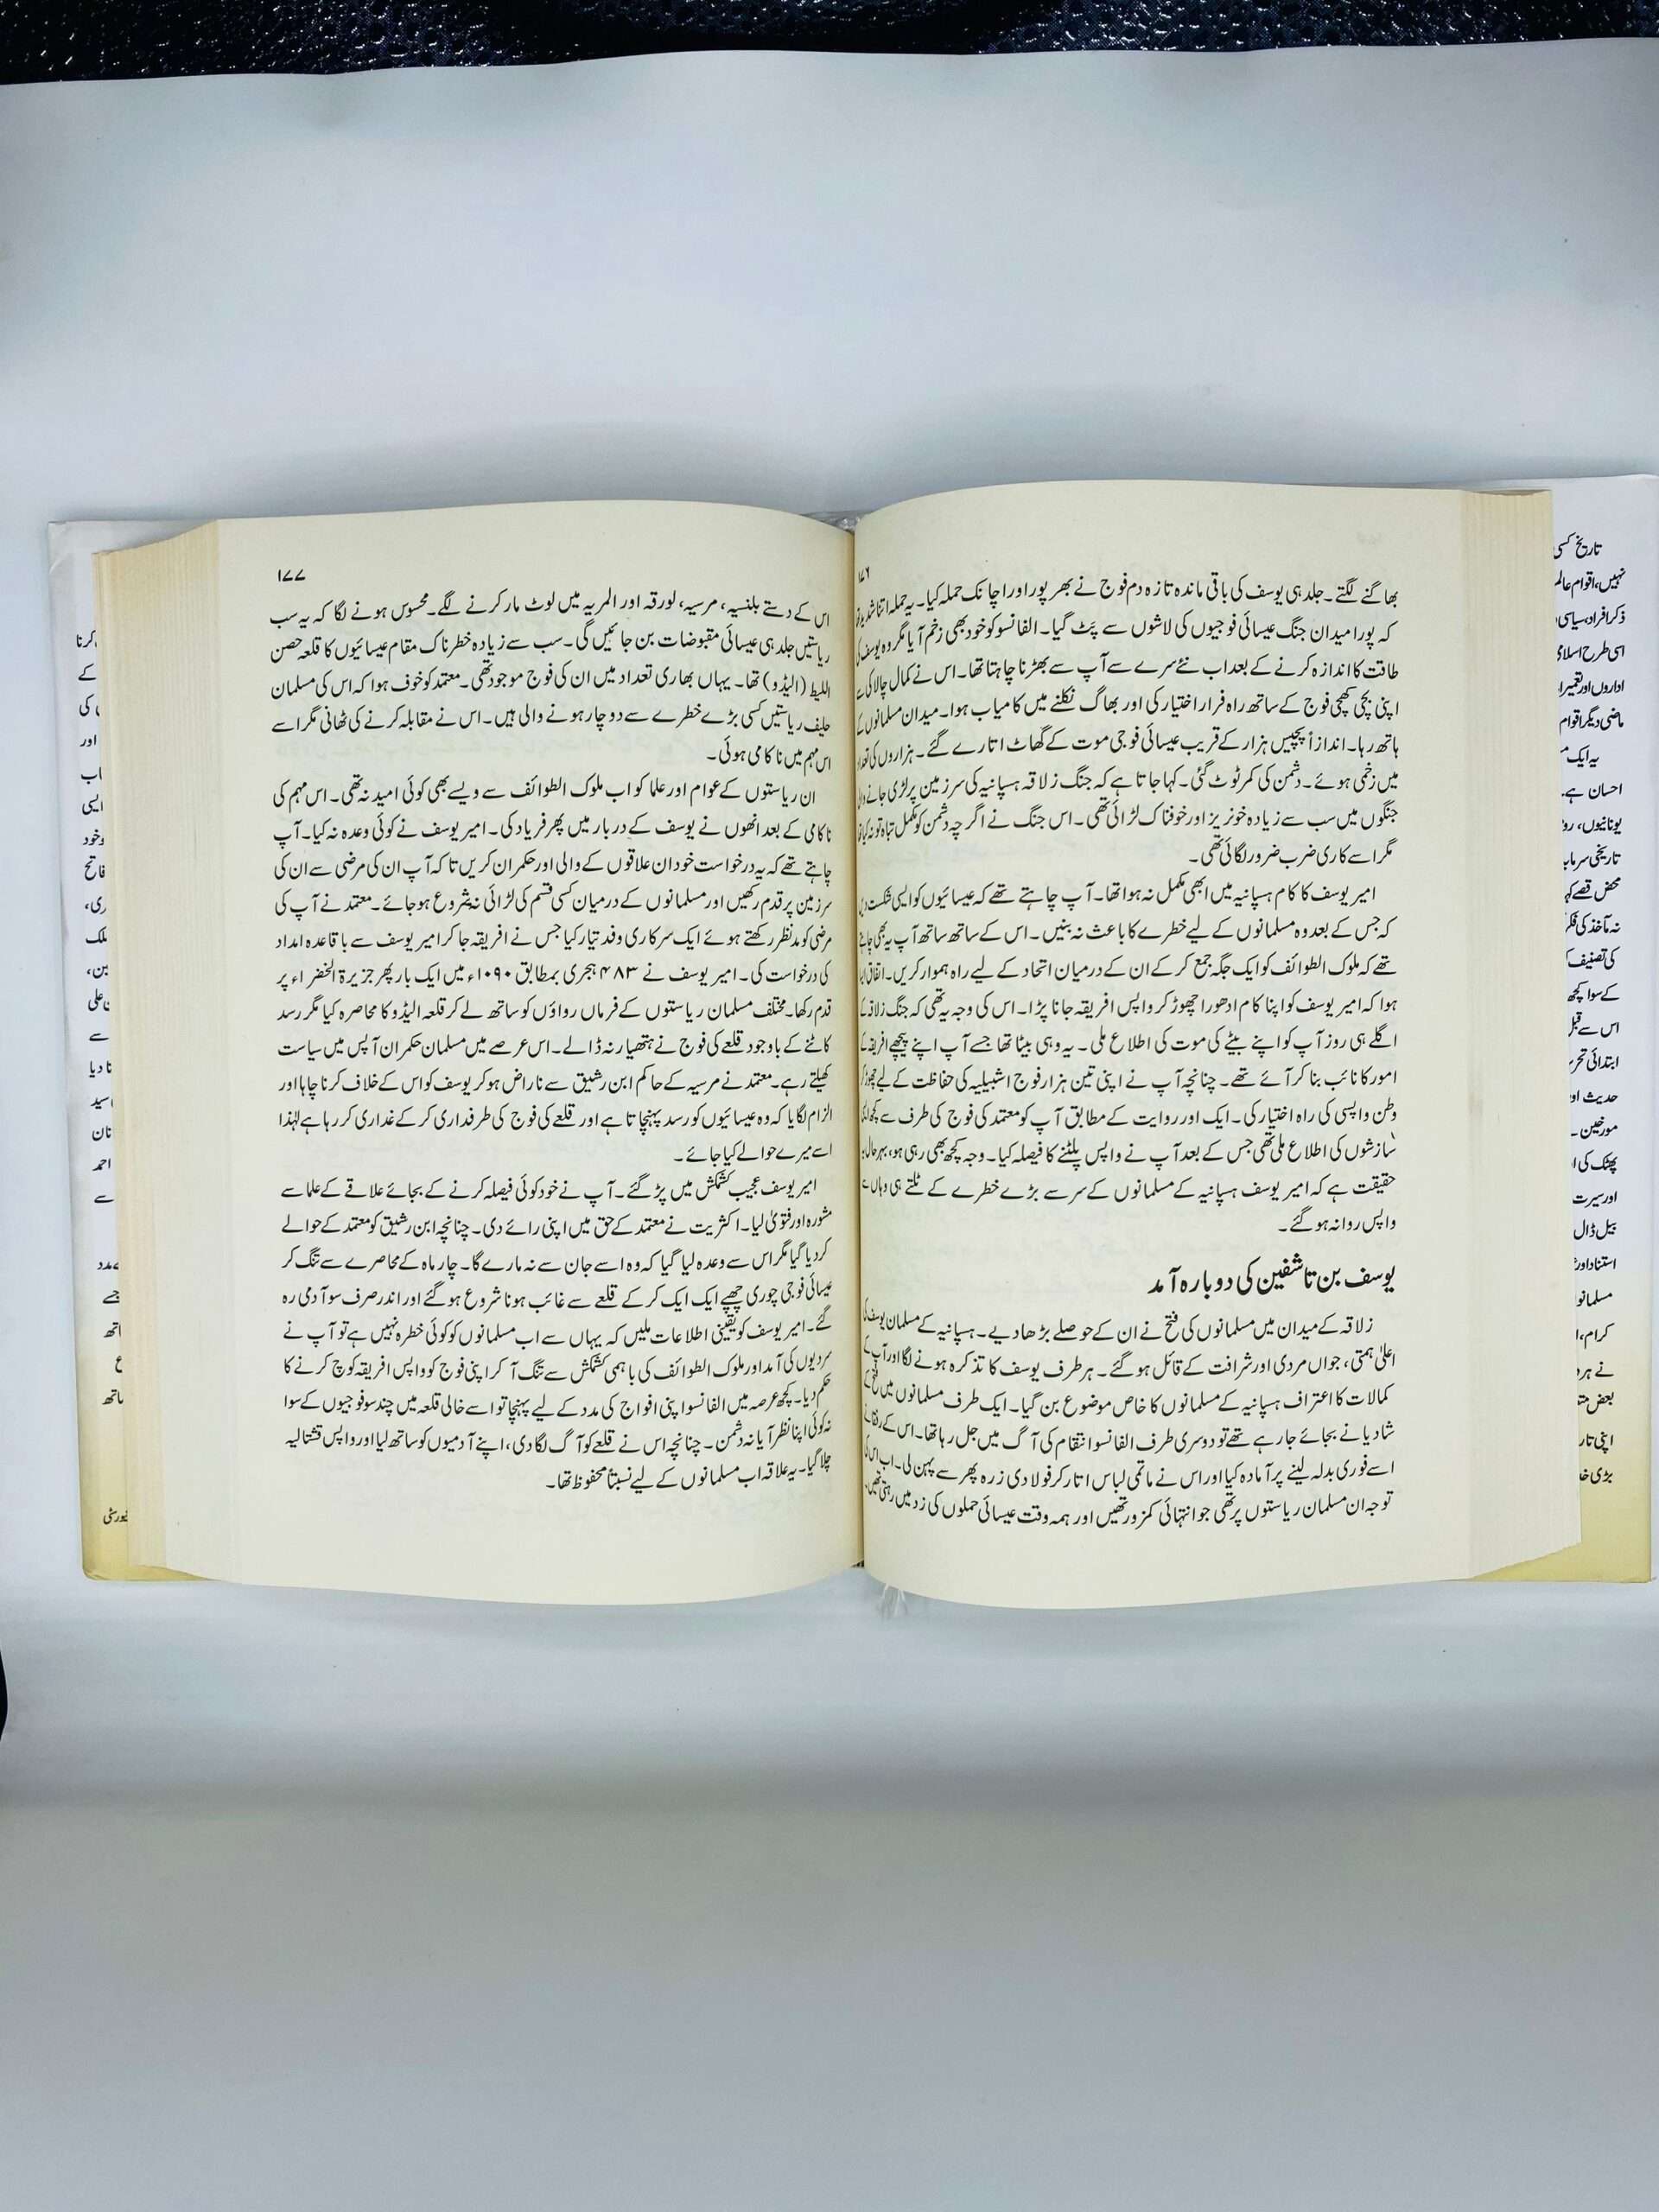 ۱۷۶
بھاگنے لگتے۔ جلد ہی یوسف کی باقی ماندہ تازہ دم فوج نے بھرپور اور اچانک حملہ کیا۔ یہ حملہ اتنا شدید
کہ پورا میدان جنگ عیسائی فوجیوں کی لاشوں سے پٹ گیا۔ الفانسو کو خود بھی زخم آیا مگر وہ یوسف کی
طاقت کا اندازہ کرنے کے بعد اب نئے سرے سے آپ سے بھڑنا چاہتا تھا۔ اس نے کمال چالاکی سے
اپنی بچی کھچی فوج کے ساتھ راہ فرار اختیار کی اور بھاگ نکلنے میں کامیاب ہوا۔ میدان مسلمانوں کے
ہاتھ رہا۔ اندازاً پچیس ہزار کے قریب عیسائی فوجی موت کے گھاٹ اتارے گئے۔ ہزاروں کی تعداد
میں زخمی ہوئے۔ دشمن کی کمر ٹوٹ گئی۔ کہا جاتا ہے کہ جنگ زلاقہ ہسپانیہ کی سرزمین پر لڑی جانے والی
جنگوں میں سب سے زیادہ خونریز اور خوفناک لڑائی تھی۔ اس جنگ نے اگر چہ دشمن کو مکمل تباہ تو نہ کیا
مگر اسے کاری ضرب ضرور لگائی تھی۔
امیر یوسف کا کام ہسپانیہ میں ابھی مکمل نہ ہوا تھا۔ آپ چاہتے تھے کہ عیسائیوں کو ایسی شکست دیں
کہ جس کے بعد وہ مسلمانوں کے لیے خطرے کا باعث نہ بنیں۔ اس کے ساتھ ساتھ آپ یہ بھی چاہتے
تھے کہ ملوک الطوائف کو ایک جگہ جمع کر کے ان کے درمیان اتحاد کے لیے راہ ہموار کریں۔ اتفاق ایسا
ہوا کہ امیر یوسف کو اپنا کام ادھورا چھوڑ کر واپس افریقہ جانا پڑا۔ اس کی وجہ یہ تھی کہ جنگ زلاقہ کے
اگلے ہی روز آپ کو اپنے بیٹے کی موت کی اطلاع ملی۔ یہ وہی بیٹا تھا جسے آپ اپنے پیچھے افریقہ کے
امور کا نائب بنا کر آئے تھے۔ چنانچہ آپ نے اپنی تین ہزار فوج اشبیلیہ کی حفاظت کے لیے چھوڑ کر
وطن واپسی کی راہ اختیار کی۔ ایک اور روایت کے مطابق آپ کو معتمد کی فوج کی طرف سے کچھ
سازشوں کی اطلاع ملی تھی جس کے بعد آپ نے واپس پلٹنے کا فیصلہ کیا۔ وجہ کچھ بھی رہی ہو، بہر حال
حقیقت ہے کہ امیر یوسف ہسپانیہ کے مسلمانوں کے سر سے بڑے خطرے کے ٹلتے ہی وہاں سے
واپس روانہ ہو گئے۔
یوسف بن تاشفین کی دوبارہ آمد
زلاقہ کے میدان میں مسلمانوں کی فتح نے ان کے حوصلے بڑھا دیے۔ ہسپانیہ کے مسلمان یوسف کی
اعلیٰ ہمتی، جواں مردی اور شرافت کے قائل ہو گئے۔ ہر طرف یوسف کا تذکرہ ہونے لگا اور آپ کے
کمالات کا اعتراف ہسپانیہ کے مسلمانوں کا خاص موضوع بن گیا۔ ایک طرف مسلمانوں میں فتح کے
شادیانے بجائے جا رہے تھے تو دوسری طرف الفانسو انتقام کی آگ میں جل رہا تھا۔ اس کے رفقا نے
اسے فوری بدلہ لینے پر آمادہ کیا اور اس نے ماتمی لباس اتار کر فولادی زرہ پھر سے پہن لی۔ اب اس کی
توجہ ان مسلمان ریاستوں پر تھی جو انتہائی کمزور تھیں اور ہمہ وقت عیسائی حملوں کی زد میں رہتی تھیں۔
۱۷۷
اس کے دستے بلنسیہ، مرسیہ، لورقہ اور المریہ میں لوٹ مار کرنے لگے۔ محسوس ہونے لگا کہ یہ سب
ریاستیں جلد ہی عیسائی مقبوضات بن جائیں گی۔ سب سے زیادہ خطرناک مقام عیسائیوں کا قلعہ حصن
اللیط (الیڈو) تھا۔ یہاں بھاری تعداد میں ان کی فوج موجود تھی۔ معتمد کو خوف ہوا کہ اس کی مسلمان
حلیف ریاستیں کسی بڑے خطرے سے دوچار ہونے والی ہیں۔ اس نے مقابلہ کرنے کی ٹھانی مگر اسے
اس مہم میں ناکامی ہوئی۔
ان ریاستوں کے عوام اور علما کو اب ملوک الطوائف سے ویسے بھی کوئی امید نہ تھی۔ اس مہم کی
ناکامی کے بعد انھوں نے یوسف کے دربار میں پھر فریاد کی۔ امیر یوسف نے کوئی وعدہ نہ کیا۔ آپ
چاہتے تھے کہ یہ درخواست خود ان علاقوں کے والی اور حکمران کریں تا کہ آپ ان کی مرضی سے ان کی
سرزمین پر قدم رکھیں اور مسلمانوں کے درمیان کسی قسم کی لڑائی نہ شروع ہو جائے۔ معتمد نے آپ کی
مرضی کو مدنظر رکھتے ہوئے ایک سرکاری وفد تیار کیا جس نے افریقہ جا کر امیر یوسف سے باقاعدہ امداد
کی درخواست کی۔ امیر یوسف نے ۴۸۳ ہجری بمطابق ۱۰۹۰ء میں ایک بار پھر جزیرۃ الخضراء پر
قدم رکھا۔ مختلف مسلمان ریاستوں کے فرماں رواؤں کو ساتھ لے کر قلعہ الیڈو کا محاصرہ کیا مگر رسد
کاٹنے کے باوجود قلعے کی فوج نے ہتھیار نہ ڈالے۔ اس عرصے میں مسلمان حکمران آپس میں سیاست
کھیلتے رہے۔ معتمد نے مرسیہ کے حاکم ابن رشیق سے ناراض ہو کر یوسف کو اس کے خلاف کرنا چاہا اور
الزام لگایا کہ وہ عیسائیوں کو رسد پہنچاتا ہے اور قلعے کی فوج کی طرفداری کر کے غداری کر رہا ہے لہٰذا
اسے میرے حوالے کیا جائے۔
امیر یوسف عجیب کشمکش میں پڑ گئے۔ آپ نے خود کوئی فیصلہ کرنے کے بجائے علاقے کے علما سے
مشورہ اور فتویٰ لیا۔ اکثریت نے معتمد کے حق میں اپنی رائے دی۔ چنانچہ ابن رشیق کو معتمد کے حوالے
کر دیا گیا مگر اس سے وعدہ لیا گیا کہ وہ اسے جان سے نہ مارے گا۔ چار ماہ کے محاصرے سے تنگ کر
عیسائی فوجی چوری چھپے ایک ایک کر کے قلعے سے غائب ہونا شروع ہو گئے اور اندر صرف سو آدمی رہ
گئے۔ امیر یوسف کو یقینی اطلاعات ملیں کہ یہاں سے اب مسلمانوں کو کوئی خطرہ نہیں ہے تو آپ نے
سردیوں کی آمد اور ملوک الطوائف کی باہمی کشمکش سے تنگ آ کر اپنی فوج کو واپس افریقہ کوچ کرنے کا
حکم دیا۔ کچھ عرصہ میں الفانسو اپنی افواج کی مدد کے لیے پہنچا تو اسے خالی قلعہ میں چند سو فوجیوں کے سوا
نہ کوئی اپنا نظر آیا نہ دشمن۔ چنانچہ اس نے قلعے کو آگ لگا دی، اپنے آدمیوں کو ساتھ لیا اور واپس قشتالیہ
چلا گیا۔ یہ علاقہ اب مسلمانوں کے لیے نسبتاً محفوظ تھا۔
تاریخ کسی
نہیں، اقوام عالم
ذکر افراد، سیاسی
اسی طرح اسلامی
اداروں اور تعمیرا
ماضی دیگر اقوام
یہ ایک
احسان ہے۔
یونانیوں، رو
تاریخی سرمایہ
محض قصے
نہ مآخذ کی فکر
کی تصنیف
کے سوا کچھ
اس سے قبل
ابتدائی تحر
حدیث اور
مورخین۔
پھٹک کی
اور سیرت
بیل ڈال
استناد اور
مسلمانو
کرام،
نے ہر
بعض
اپنی تار
بڑی
کرنا
کے
کی
اور
اب
ایسی
وخود
فاتح
ری،
ملک
بن،
علی
سے
نا دیا
سید
تان
احمد
سے
مدد
جسے
اتھ
ع
ماتھ
نیورسٹی